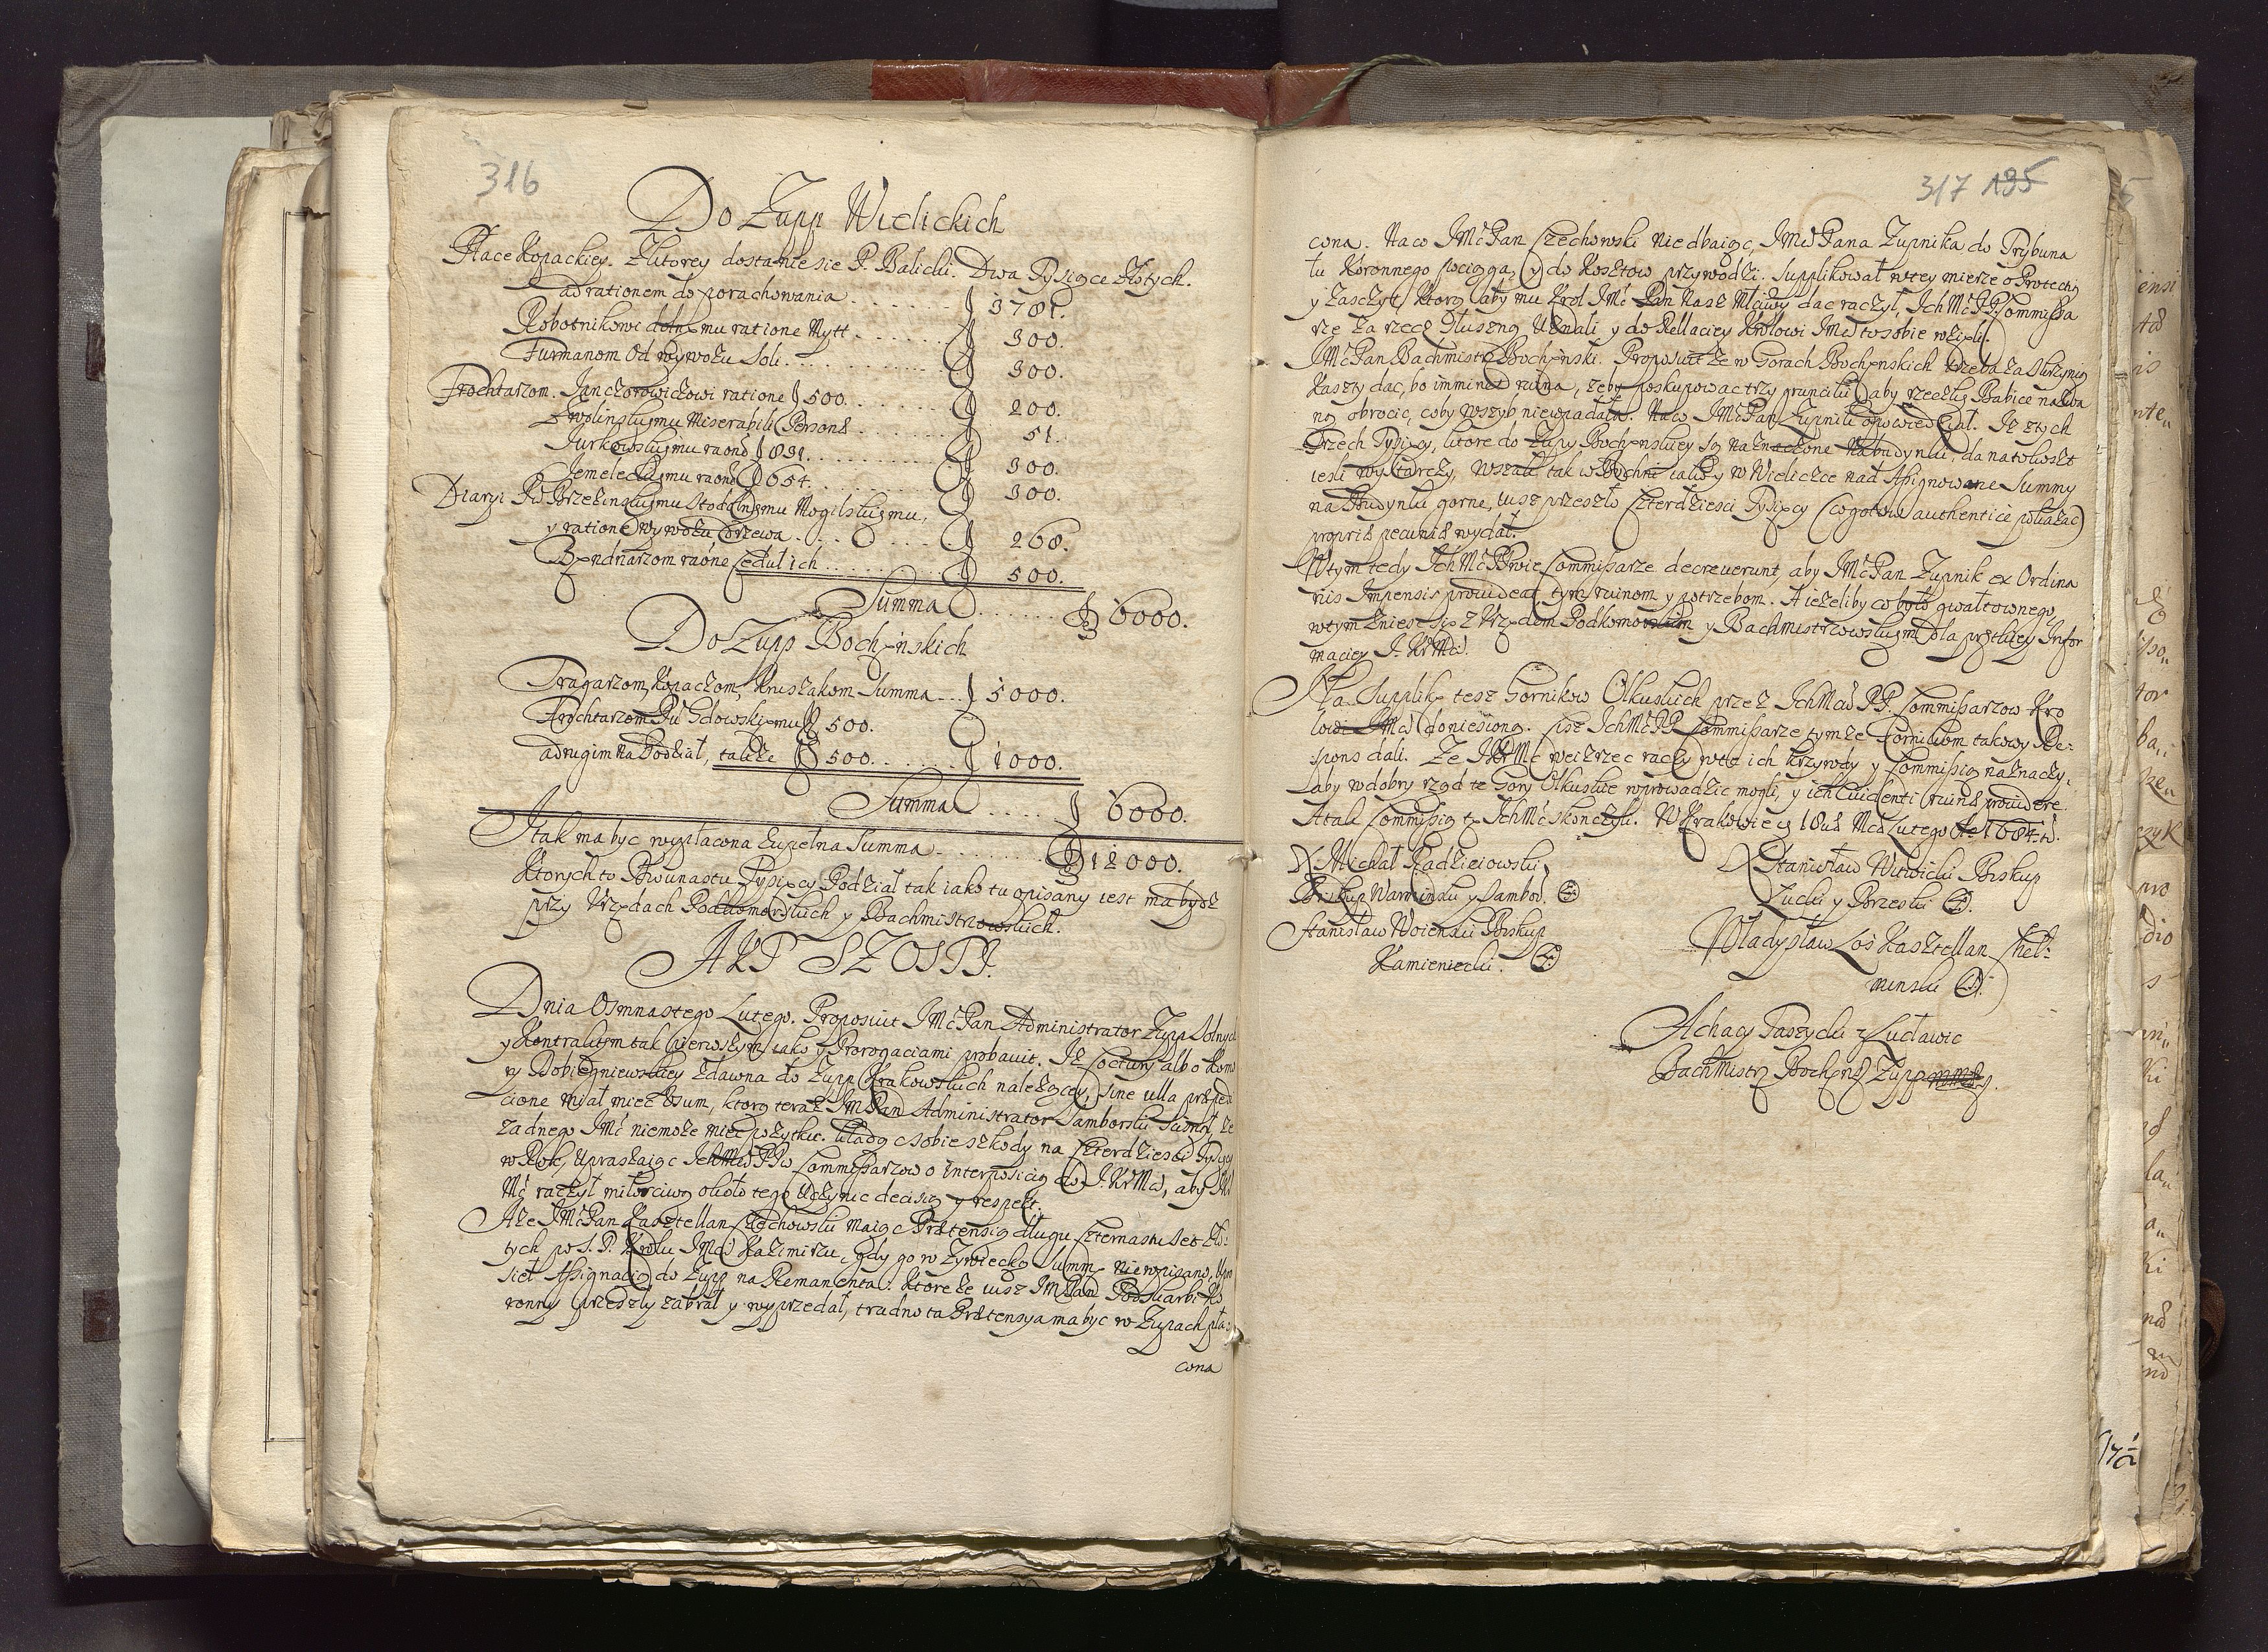 316
Do Zupp Wielickich
Płace Kopackiey. z ktorey dostanie sie P. Balicki. Dwa Tysiące złotych.
ad rationem do porachowania . . . . f 3781.
Robotnikowi ratione Mytt . . . . . . f 300.
Furmanom od wywozu Soli . . . . . . f 300.
Frochtarzom. Janczorowiczowi ratione f 500. . . . . f 200.
Zwolinskięmu Miserabili Personæ . . . . . . 51.
Jurkowskięmu raone f 831. . . . . . f 300.
Jemeleckięmu raone f 654. . . . . . f 300.
Diaryi Pw Brzezinskięmu Stodolnęmu Mogilskięmu,
y ratione wywozu Drzewa . . . . . . f 268.
Bęndnarzom raone Cedul ich . . . . . . f 500.
Summa . . . . . . f 6000.
Do Zupp Bochęnskich
Tragarzom, Kopaczom, Kruszakom Summa . . . f 5000.
Frochtarzom Pw Gdowskięmu f 500.
a drugim na Podział, także f 500. . . . . . f 1000.
Summa . . . . . f 6000.
A tak ma być wypłacona zupełna Summa . . . . . . f 12000.
Ktorych to Dwunastu Tysięcy Podział tak iako tu opisany iest ma bydź
przy Urzędach Podkomorskich y Bachmistrzowskich.
AKT SZOSTY.
Dnia Osmnastego Lutego. Proposuit JMć Pan Administrator Zupp Solnych
y Kontraktem tak pierwszym iako y Prorogaciami probavit. Iż Coctury albo Komo
ry Dobiegniewskiey zdawna do Zupp Krakowskich należącey, sine ulla præpedi
tione miał mieć Usum, ktorą teraz JM Pan Administrator Samborski że
zadnego JMć niemoże mieć pożytku. Kładąc sobie szkody na Czterdziesci Tysięcy
w Rok, upraszaiąc IchMćw PPw Commissarzow o interposicią do J. KrMći, aby JKr
Mć raczył miłościwą około tego uczynic decisią y respekt.
Aże JMć Pan Kasztellan Czechowski maiąc Prætensią długu Czternastu set zło:
tych po S. P. Krolu JMći Kazimirzu, gdy go w Zywiecką Summę niewpisano,
Assignacią do Zupp na Remanenta: Ktore że iusz JM Pan Podskarbi Ko
ronny przeszły zabrał y wyprzedał, trudno ta Prætensya ma być w Zupach pła:
cona
317 195
cona. Na co JMć Pan Czechowski niedbaiąc, JMći Pana Zupnika do Trybuna
łu Koronnego pociąga, y do Kosztow przywodzi. Supplikował w tey mierze o Protecią
y Zasczyt, ktorą aby mu Krol JMć Pan Nasz Młciwy dac raczył, IchMć PP. Commissa
rze za rzecz słuszną uznali y do Rellaciey Krolowi JMći to sobie wzięli.
JMć Pan Bachmistrz Bochęnski. Proposuit że w Gorach Bochęnskich trzeba za Skrzynią
Kaszty dac, bo imminet ruina, żeby poskupowac trzy grunciki aby rzeczkę Babice nazwa
ną obrocic, coby w szyb niewpadała. Na co JMć Pan Zupnik opowiedział. Iż z tych
Trzech Tysięcy, ktore do Zupy Bochęnskiey są naznaczone na budynki, da na to koszt
iesli wystarczy, wszak tak w Bochni iako y w Wieliczce nad Assignowane Summy
na Budynki gorne, iusz przeszło Czterdziesci Tysięcy (co gotow authentice pokazać)
propriæ pecuniæ wydał.
W tym tedy IchMć PPwie Commissarze decreverunt, aby JMć Pan Zupnik ex Ordina
riis Impensis provideat tym ruinom y potrzebom. A ieżeliby co było gwałtownego,
w tym zniesc się z Urzędem Podkomorskim y Bachmistrzowskięm dla prętkiey Infor
maciey J. KrMći.
Na Supplikę tesz Gornikow Olkuskich przez IchMćiow PP. Commissarzow Kro
lowi JMći doniesioną. Ciż IchMć PP. Commissarze tymże Gornikom takowy Re:
spons dali. Że JKrMć weizrzec raczy w te ich Krzywdy y Commissią naznaczy,
aby w dobry rząd te Gory Olkuskie wprowadzic mogli, y ich Evidenti ruinæ providere.
A tak Commissią tę IchMć skonczyli. W Krakowie 18va Mca Lutego Ao 1684to.
X. Michał Radzieiowski
Biskup Warminski y Sambor. (LS)
X Stanisław Witwicki Biskup
Łucki y Brzeski (LS).
Stanisław Woienski Biskup
Kamieniecki. (LS)
Władysław Łoś Kasztellan Cheł:
minski (LS)
Achacy Taszycki z Lucławic
Bachmistrz Bochęns Zupp